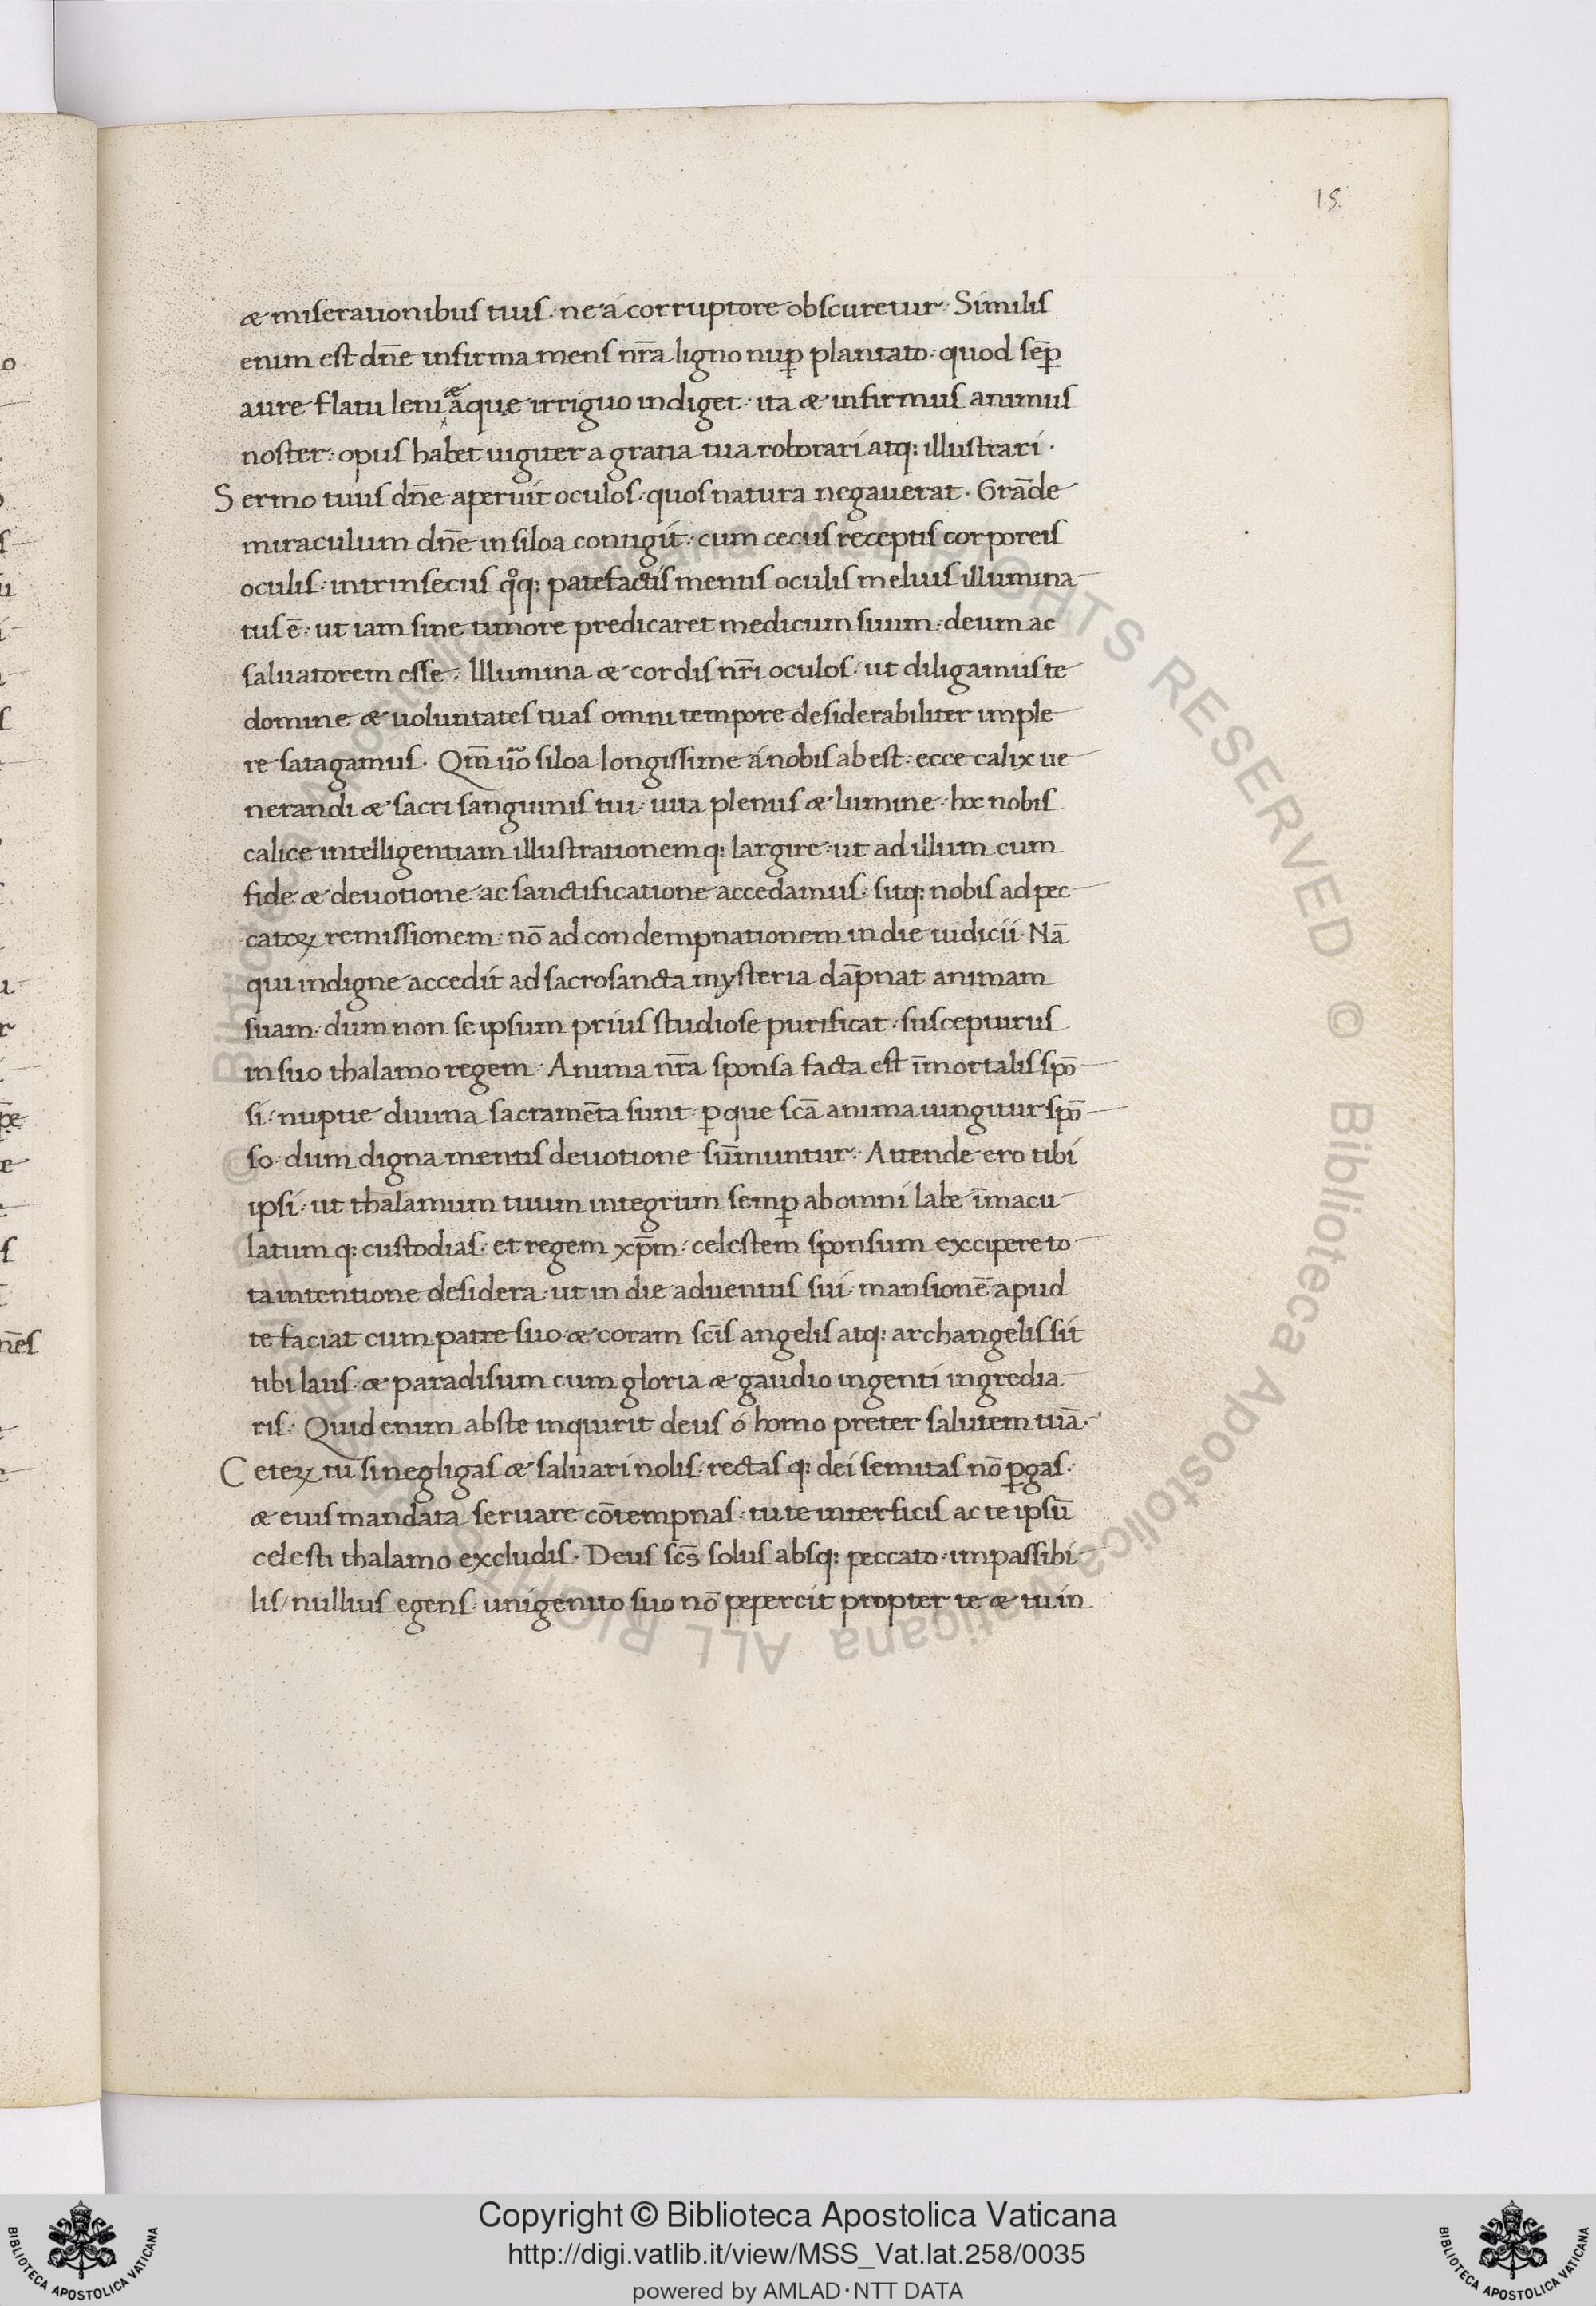 15.
æ miserationibus tuis · ne á corruptore obscuretur · Similis
enim est dn̄e infirma mens nr̄a ligno nup̄ plantato · quod sēp̄
aure flatu leni æ̀ aque irriguo indiget · ita æ infirmus animus
noster · opus habet uigiter a gratia tua roborari atq; illustrari ·
Sermo tuus dn̄e aperuit oculos · quos natura negauerat · Grāde
miraculum dn̄e in siloa contigit · cum cecus receptis corporeis
oculis · intrinsecus qͦq; patefactis mentis oculis melius illumina
tus ē · ut iam sine timore predicaret medicum suum · deum ac
saluatorem esse · Illumina æ cordis nr̄i oculos · ut diligamus te
domine æ uoluntates tuas omni tempore desiderabiliter imple
re satagamus · Qm̄ ūo siloa longissime á nobis abest · ecce calix ue
nerandi æ sacri sanguinis tui · uita plenus æ lumine · hoc nobis
calice intelligentiam illustrationemq; largire · ut ad illum cum
fide æ deuotione ac sanctificatione accedamus · sitq; nobis ad pec
catoꝝ remissionem · nō ad condempnationem in die iudicii · Nā
qui indigne accedit ad sacrosancta mysteria dāpnat animam
suam · dum non se ipsum prius studiose purificat · suscepturus
in suo thalamo regem · Anima nr̄a sponsa facta est īmortalis spō
si · nuptie diuina sacramēta sunt · ꝑ que scā anima iungitur spō
so · dum digna mentis deuotione sūmuntur · Attende ero tibi
ipsi · ut thalamum tuum integrum semꝑ ab omni labe īmacu
latum q; custodias · et regem xp̄m · celestem sponsum excipere to
ta intentione desidera · ut in die aduentus sui · mansionē apud
te faciat cum patre suo · æ coram scīs angelis atq; archangelis sit
tibi laus · æ paradisum cum gloria æ gaudio ingenti ingredia
ris · Quid enim abs te inquirit deus ó homo preter salutem tuā ·
Ceteꝝ tu si negligas æ saluari nolis · rectas q; dei semitas nō ꝑgas ·
æ eius mandata seruare cōtempnas · tu te interficis ac te ipsū
celesti thalamo excludis · Deus scs̄ solus absq; peccato · impassibi
lis / nullius egens · unigenito suo nō pepercit propter te æ tu in
Copyright © Biblioteca Apostolica Vaticana
http://digi.vatlib.it/view/MSS_Vat.lat.258/0035
powered by AMLAD · NTT DATA